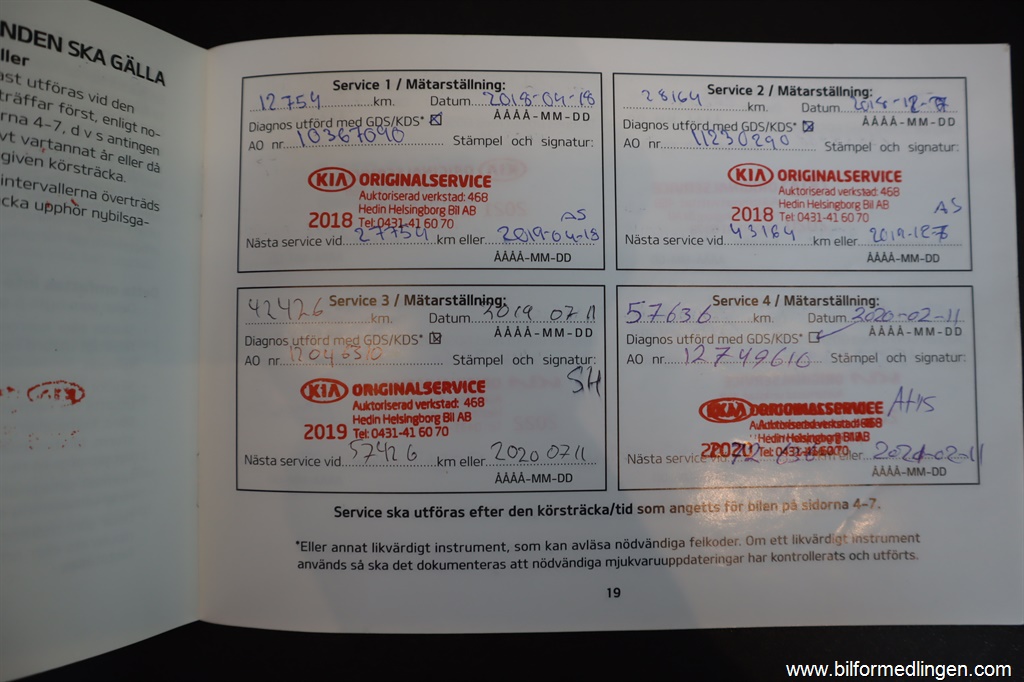 NDEN SKA GÄLLA
ller
ast utföras vid den
träffar först, enligt no-
rna 4-7, d v s antingen
vt vartannat år eller då
given körsträcka.
intervallerna överträds
cka upphör nybilsga-
Service 1 / Mätarställning:
12754 km. Datum 2018-04-18
ÅÅÅÅ-MM-DD
Diagnos utförd med GDS/KDS*
AO nr. 10367040 Stämpel och signatur:
KIA ORIGINALSERVICE
Auktoriserad verkstad: 468
Hedin Helsingborg Bil AB
2018 Tel: 0431-41 60 70
AS
Nästa service vid 27754 km eller 2019-04-18
ÅÅÅÅ-MM-DD
Service 2 / Mätarställning:
28164 km. Datum
ÅÅÅÅ-MM-DD
Diagnos utförd med GDS/KDS*
AO nr. 11230290 Stämpel och signatur:
KIA ORIGINALSERVICE
Auktoriserad verkstad: 468
Hedin Helsingborg Bil AB
2018 Tel: 0431-41 60 70
AS
Nästa service vid 43164 km eller
ÅÅÅÅ-MM-DD
Service 3 / Mätarställning:
42426 km. Datum 2019 07 11
ÅÅÅÅ-MM-DD
Diagnos utförd med GDS/KDS*
AO nr. Stämpel och signatur:
SH
KIA ORIGINALSERVICE
Auktoriserad verkstad: 468
Hedin Helsingborg Bil AB
2019 Tel: 0431-41 60 70
Nästa service vid 57426 km eller 2020 07 11
ÅÅÅÅ-MM-DD
Service 4 / Mätarställning:
57636 km. Datum 2020-02-11
ÅÅÅÅ-MM-DD
Diagnos utförd med GDS/KDS*
AO nr. 12749610 Stämpel och signatur:
KIA ORIGINALSERVICE
Auktoriserad verkstad: 468
Hedin Helsingborg Bil AB
2020 Tel: 0431-41 60 70
Nästa service vid km eller 2021-02-11
ÅÅÅÅ-MM-DD
Service ska utföras efter den körsträcka/tid som angetts för bilen på sidorna 4-7.
*Eller annat likvärdigt instrument, som kan avläsa nödvändiga felkoder. Om ett likvärdigt instrument
används så ska det dokumenteras att nödvändiga mjukvaruuppdateringar har kontrollerats och utförts.
19
www.bilformedlingen.com